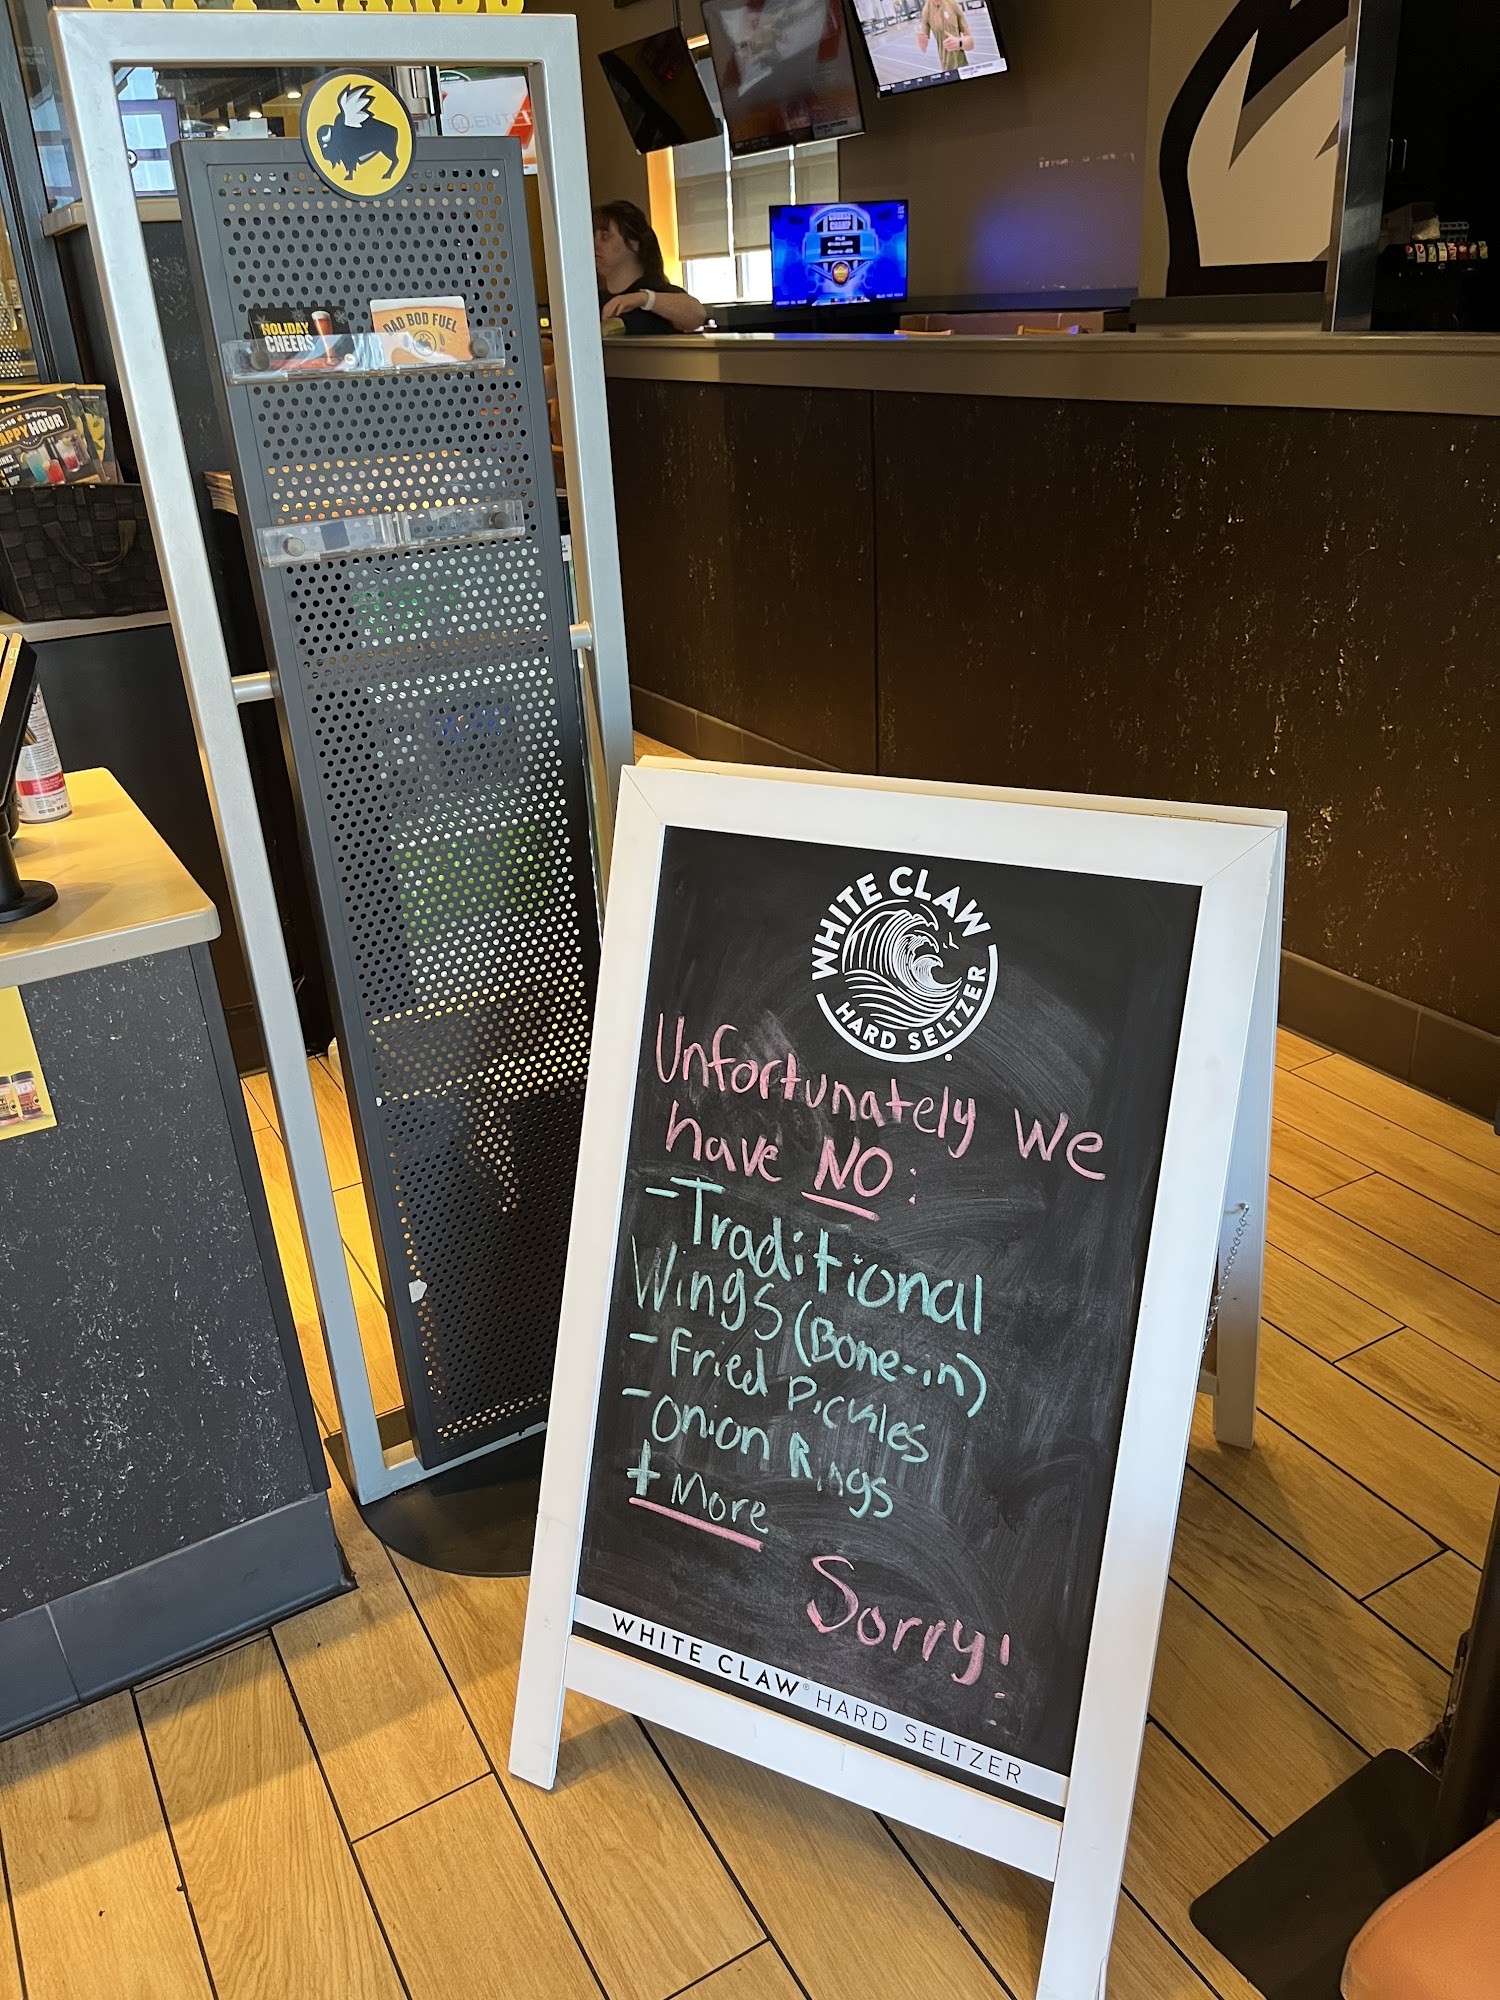 GIFT CARDS
HOLIDAY
CHEERS
DAD BOD FUEL
HAPPY HOUR
WHITE CLAW
HARD SELTZER
Unfortunately we
have NO:
-Traditional
Wings (Bone-in)
-Fried Pickles
-Onion Rings
+ More
Sorry!
WHITE CLAW® HARD SELTZER